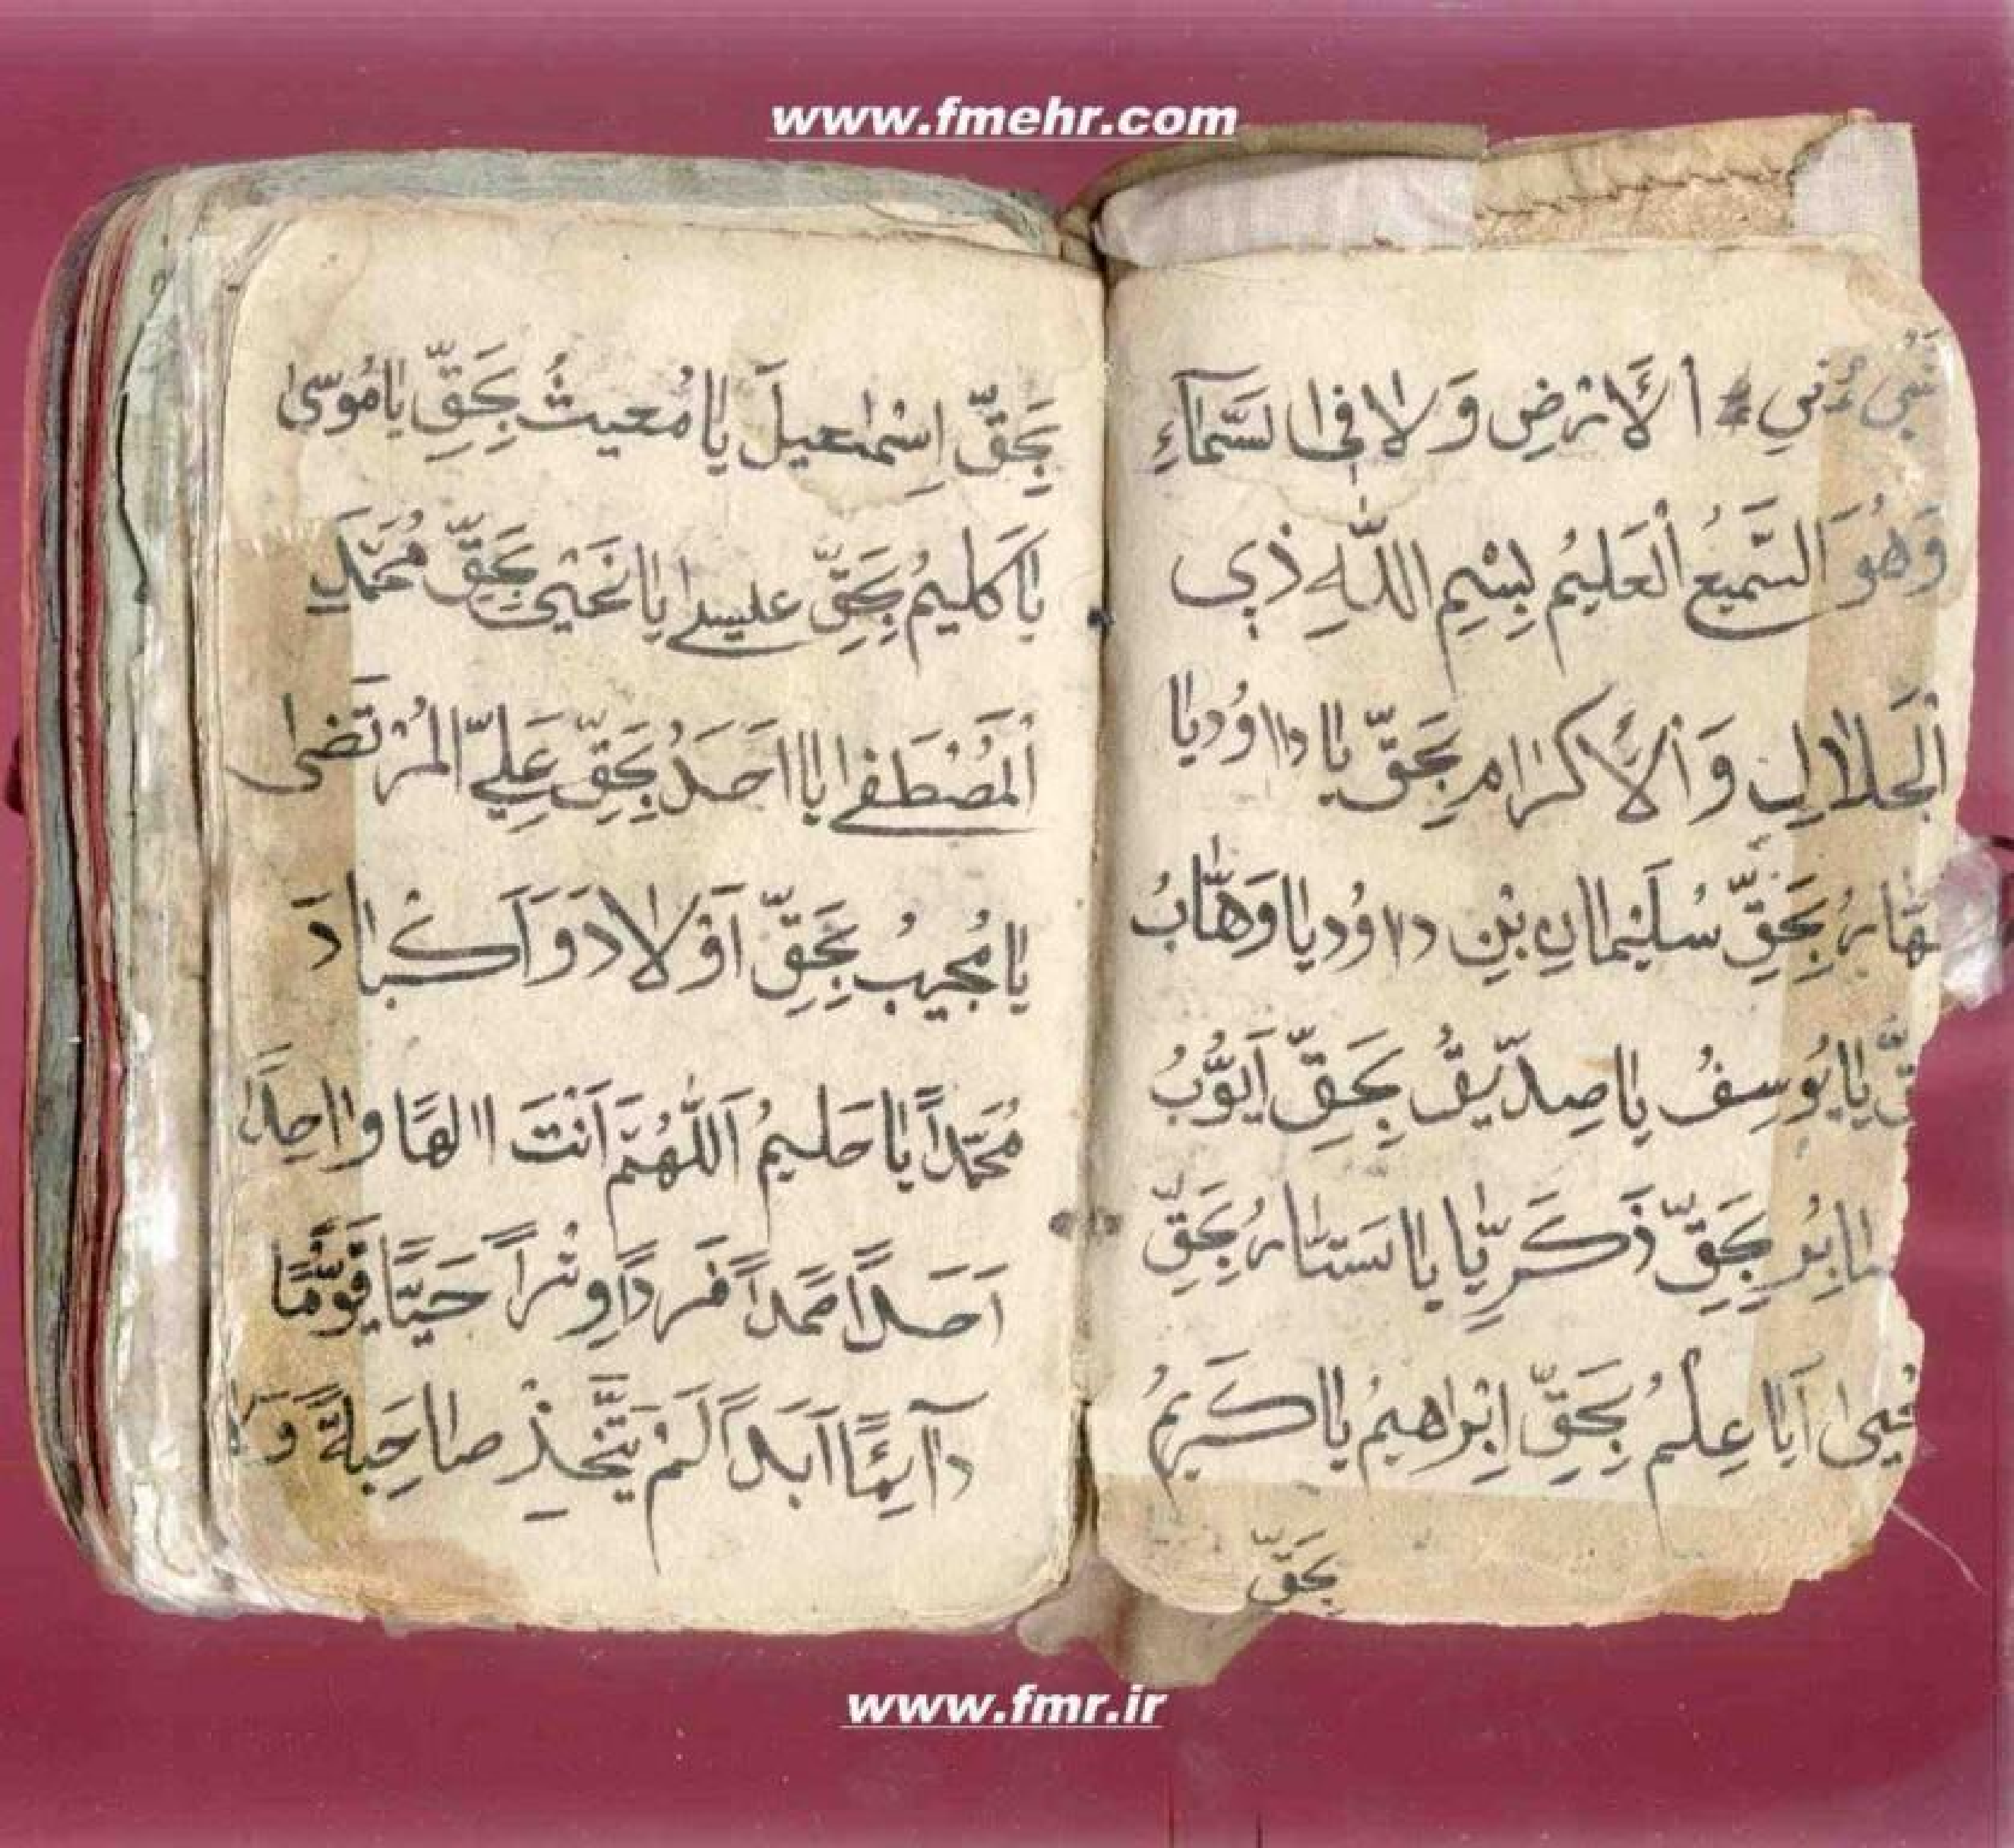 www.fmehr.com
الْأَرْضِ وَلَا فِي السَّمَاءِ
وَهُوَ السَّمِيعُ الْعَلِيمُ بِسْمِ اللَّهِ ذِي
الْجَلَالِ وَالْأَكْرَامِ بِحَقِّ يَا دَاوُد يَا
بِحَقِّ سُلَيْمَانِ بْنِ دَاوُد يَا وَهَّابُ
يَا يُوسِفُ يَا صِدِّيقُ بِحَقِّ أَيُّوبُ
بِحَقِّ ذَكَرِيَّا يَا سَتَّارُ بِحَقِّ
أَيَا عِلْمُ بِحَقِّ اِبْرَاهِيمُ يَا كَرِيمُ
بِحَقِّ
بِحَقِّ اِسْمَعِيلَ يَا مُعِيثُ بِحَقِّ يَا مُوسَى
يَا كَلِيمُ بِحَقِّ عَلِيسَى يَا بِحَقِّ مُحَمَّدٍ
الْمُصْطَفَى يَا اَحَدُ بِحَقِّ عَلِيِّ الْمُرْتَضَى
يَا مُجِيبُ بِحَقِّ اَوْلَادَ وَ اَكْبَادَ
مُحَمَّداً يَا حَلِيمُ اَللَّهُمَّ اَنْتَ اِلَهًا وَاحِدًا
اَحَداً صَمَداً فَرْداً وِتْراً حَيًّا قَيُّومًا
دَآئِمًا اَبَداً لَمْ يَتَّخِذْ صَاحِبَةً وَلَا
www.fmr.ir